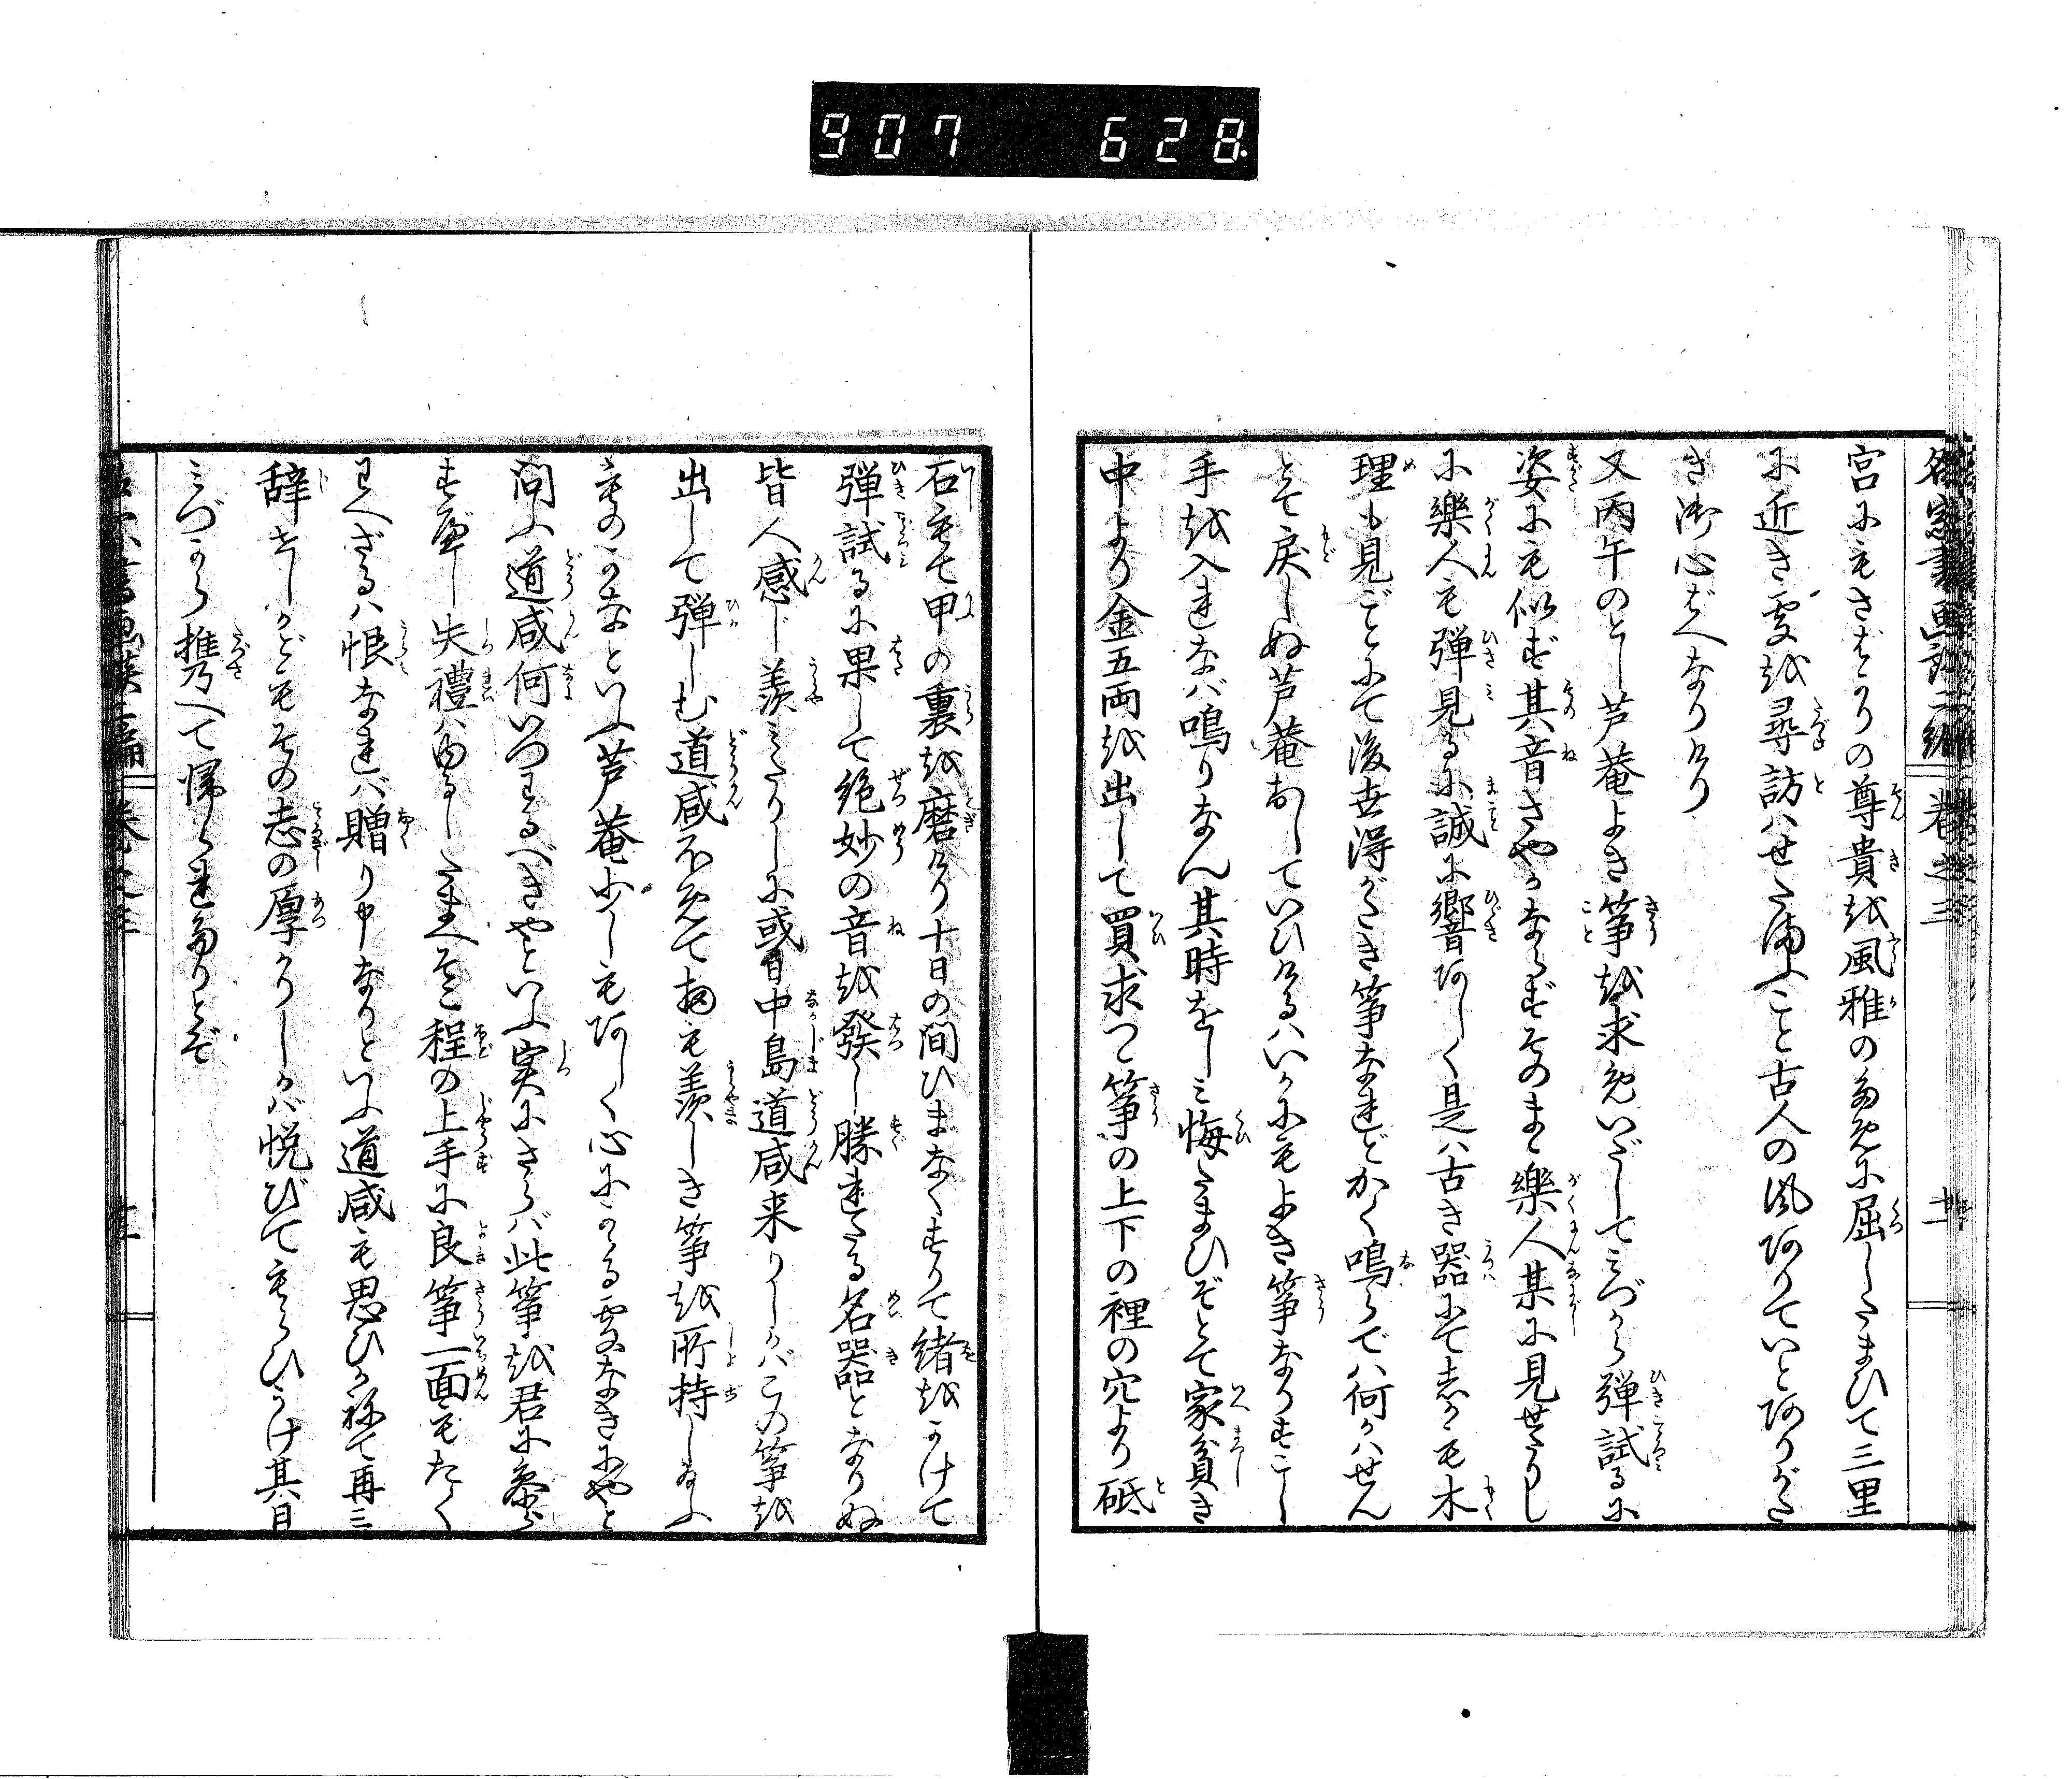 907 628
宮にもさばかりの尊貴を風雅のために屈したまひて三里
に近き処を尋訪はせたまふこと古人の風ありていとありがた
き御心ばへなりけり
又丙午のとし芦菴よき箏を求めいだしてみづから弾試るに
姿にも似ず其音さやかならずそのまゝ樂人某に見せたりし
に樂人も弾見るに誠に響あしく是は古き器にて志かも木
理も見ごとにて後世得がたき箏なれどかく鳴らでは何かはせん
とて戻しぬ芦菴おしていひけるはいかにもよき箏なりすこし
手を入れなば鳴りなん其時をしみ悔たまひぞとて家貧き
中より金五両を出して買求つゝ箏の上下の裡の穴より砥
石もて甲の裏を磨けり十日の間ひまなくすりて緒をかけて
弾試るに果して絶妙の音を發し勝れたる名器となりぬ
皆人感じ羨みたりしに或日中島道咸来りしかばこの箏を
出して弾しむ道咸ほめて扨も羨しき箏を所持したまふ
ものかなといふ芦菴少しもあしく心にかゝる処なきにやと
問ふ道咸何いつはるべきやといふ実にさらば此箏を君に参ら
すべし失禮はゆるしたまへそこ程の上手に良箏一面もたく
はへざるは恨なれば贈り申なりといふ道咸も思ひかねて再三
辞せしかどもその志の厚かりしかば悦びてもらひうけ其日
みづから携へて帰られたりとぞ